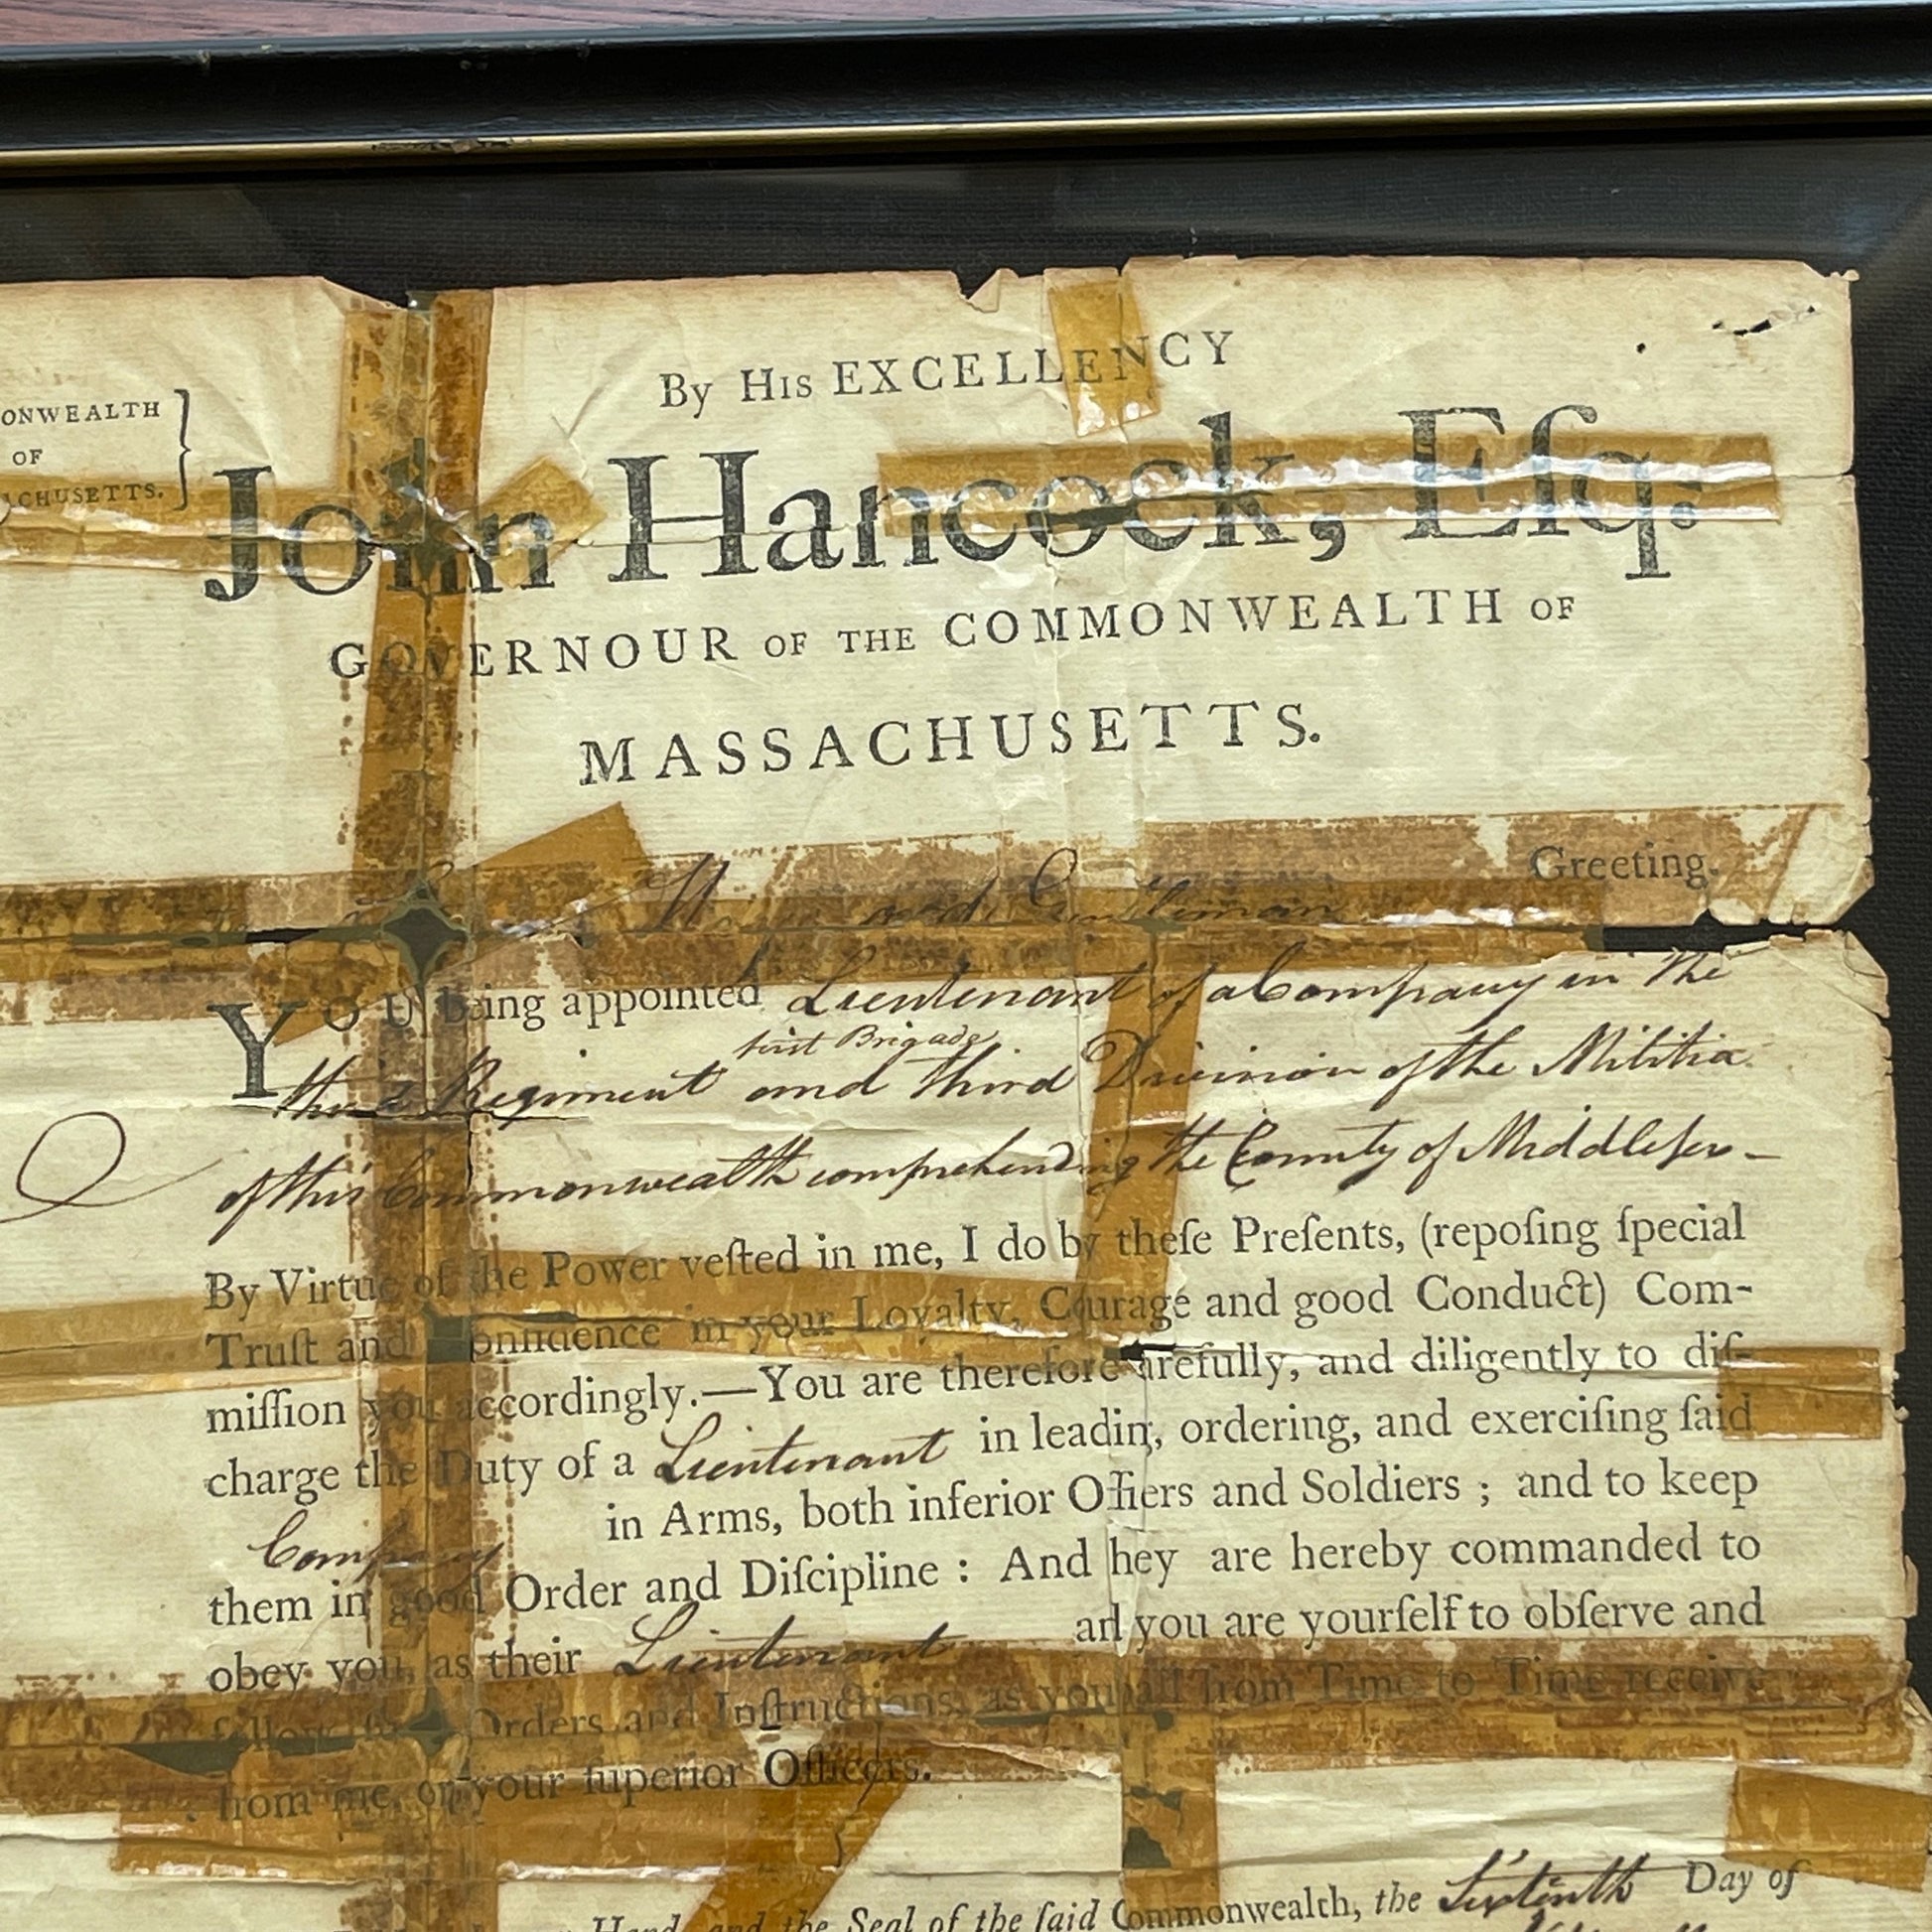 ONWEALTH
OF
ACHUSETTS.
By His EXCELLENCY
John Hancock, Eſq:
GOVERNOUR OF THE COMMONWEALTH OF
MASSACHUSETTS.
Gentleman Greeting.
YOU being appointed Lieutenant of a Company in the
first Brigade
third Regiment and third Division of the Militia
of this Commonwealth comprehending the County of Middlesex –
By Virtue of the Power veſted in me, I do by theſe Preſents, (repoſing ſpecial
Truſt and onfidence in your Loyalty, Courage and good Conduct) Com-
miſſion you accordingly.—You are therefore arefully, and diligently to diſ-
charge the Duty of a Lieutenant in leading, ordering, and exerciſing ſaid
Company in Arms, both inferior Offiers and Soldiers ; and to keep
them in good Order and Diſcipline : And hey are hereby commanded to
obey you, as their Lieutenant and you are yourſelf to obſerve and
follow Orders and Inſtructions, as you all from Time to Time receive
from me, or your ſuperior Officers.
Hand, and the Seal of the ſaid Commonwealth, the Sixteenth Day of